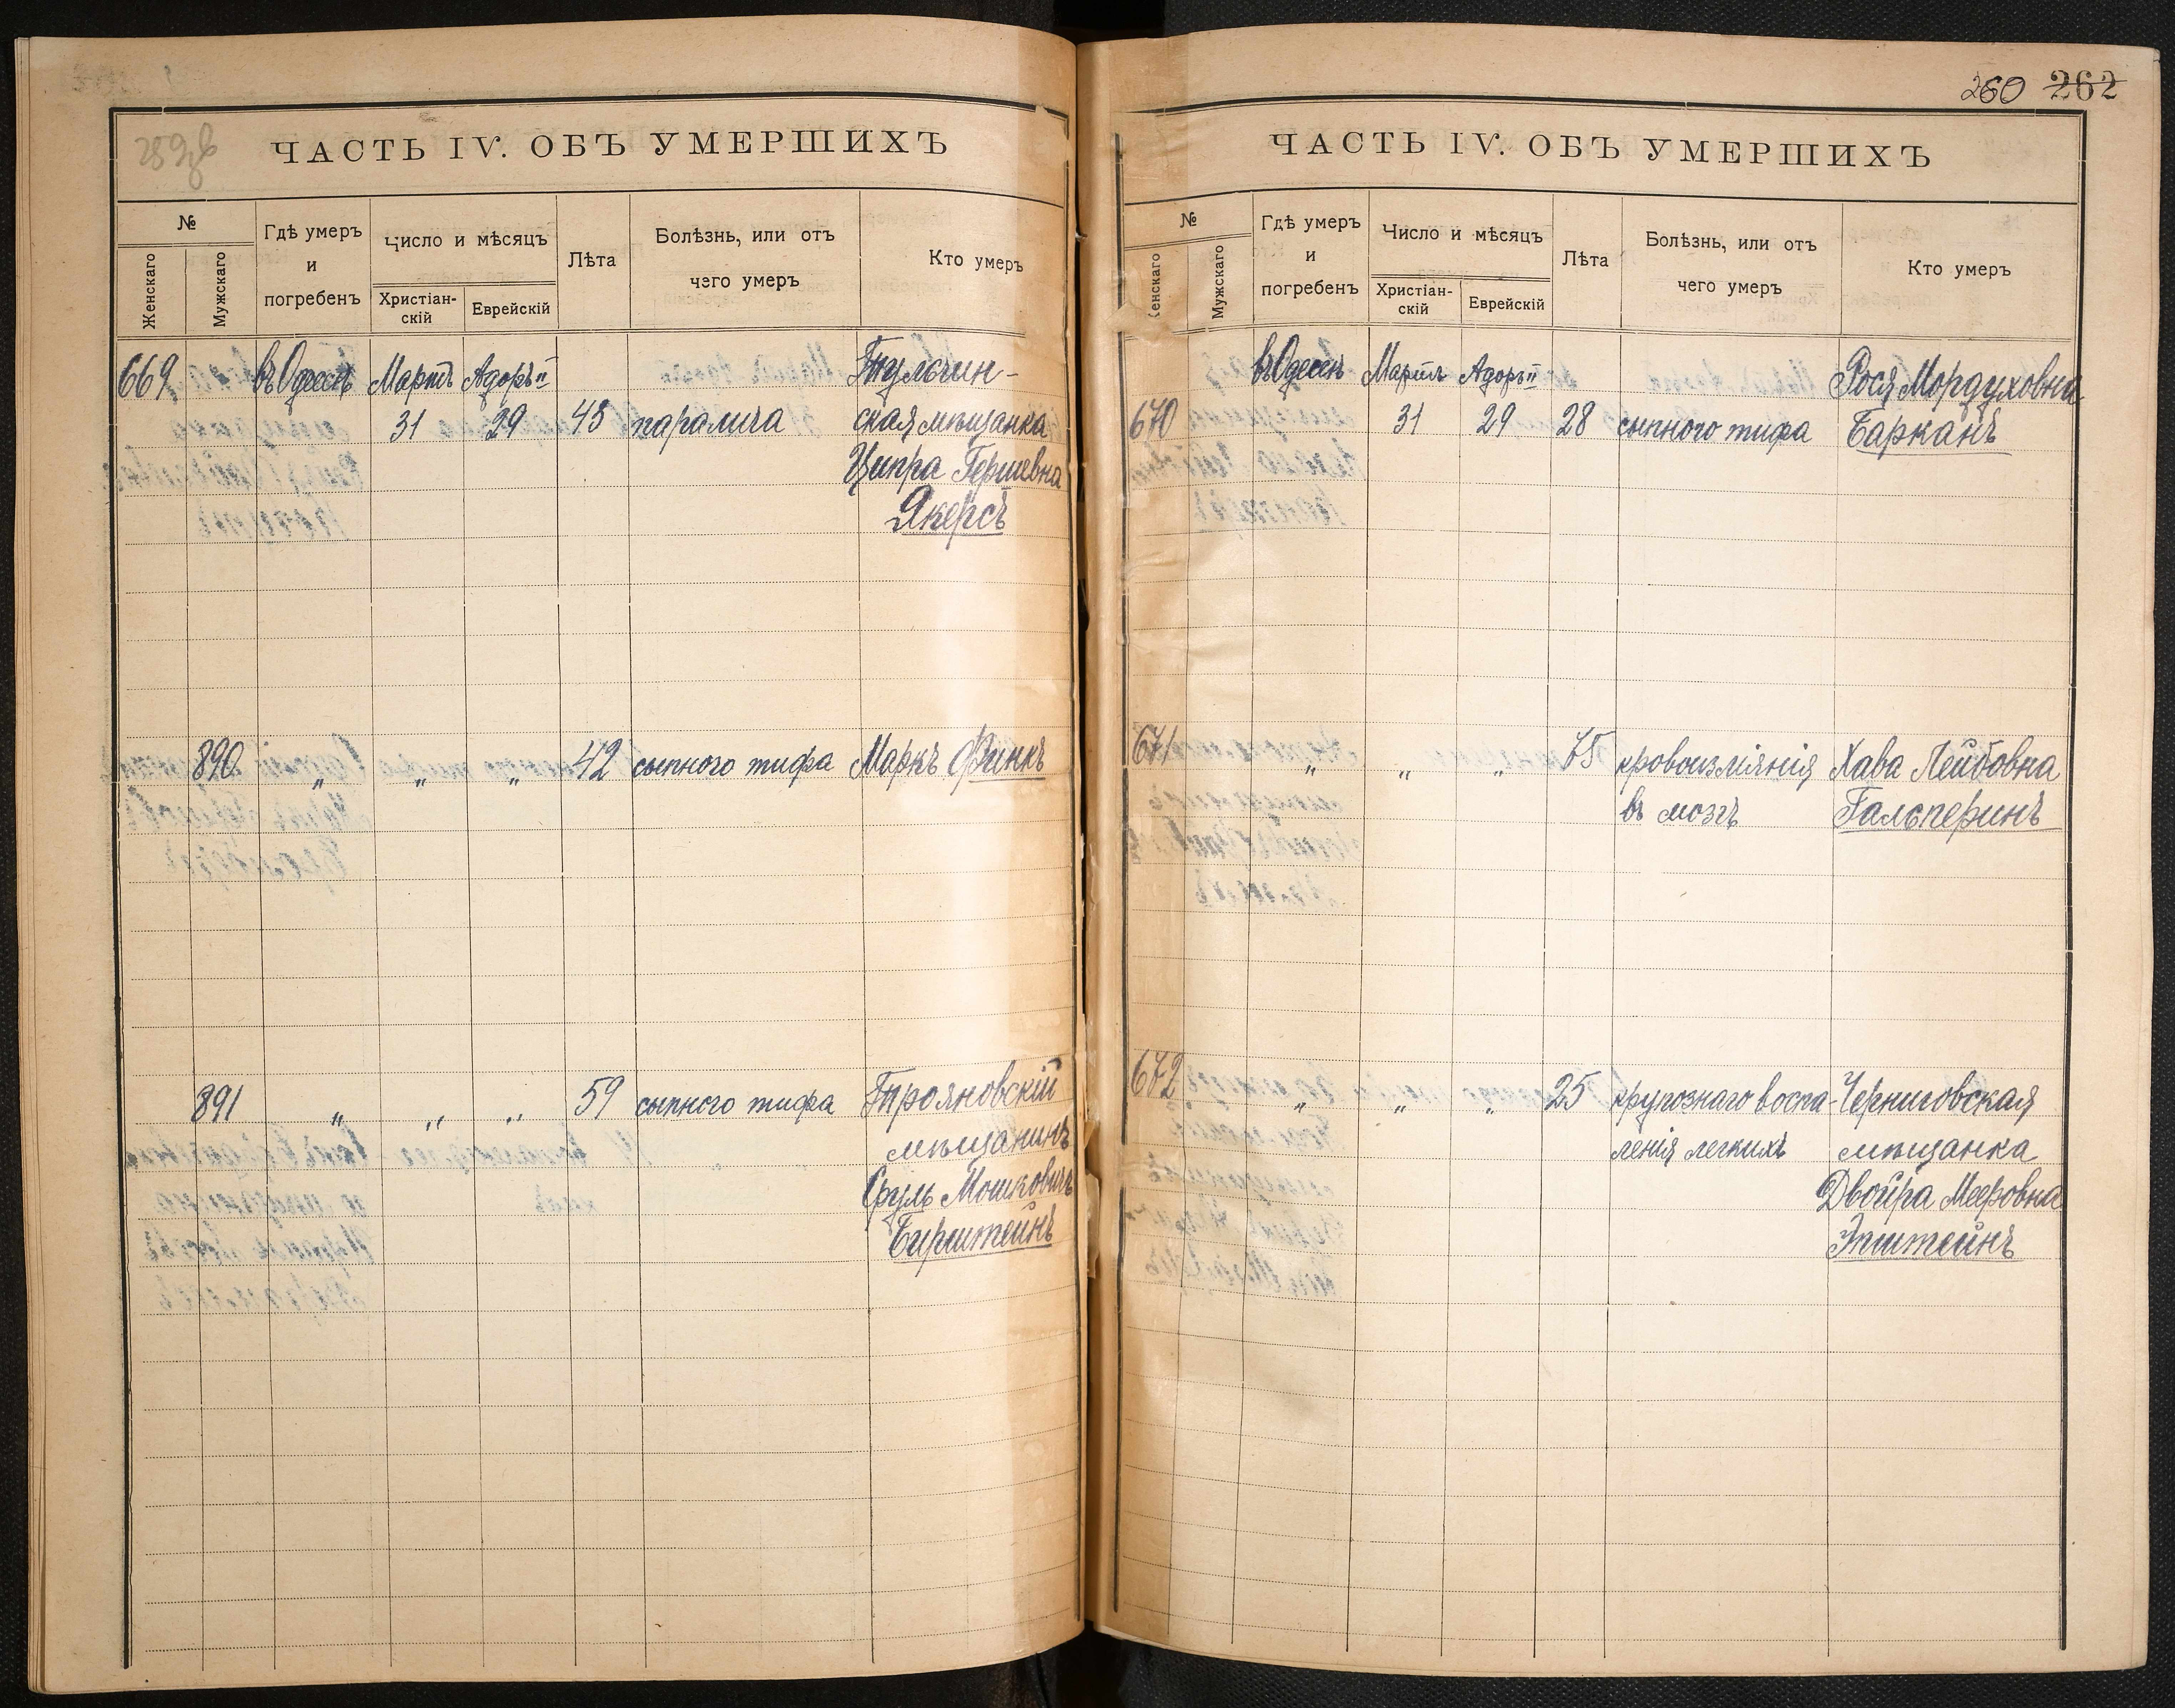 260 262
259об
ЧАСТЬ IV. ОБЪ УМЕРШИХЪ
№
Женскаго
Мужскаго
Гдѣ умеръ
и
погребенъ
Число и мѣсяцъ
Христіан-
скій
Еврейскій
Лѣта
Болѣзнь, или отъ
чего умеръ
Кто умеръ
669 въ Одессѣ Мартъ Адоръ II Тульчин-
31 29 45 паралича ская мѣщанка
Ципра Гершевна
Якерсъ
890 " " " 42 сыпного тифа Маркъ Финкъ
891 " " " 59 сыпного тифа Трояновскій
мѣщанинъ
Сруль Мошковичъ
Бирштейнъ
ЧАСТЬ IV. ОБЪ УМЕРШИХЪ
№
Женскаго
Мужскаго
Гдѣ умеръ
и
погребенъ
Число и мѣсяцъ
Христіан-
скій
Еврейскій
Лѣта
Болѣзнь, или отъ
чего умеръ
Кто умеръ
въ Одессѣ Мартъ Адоръ II Рося Мордуховна
670 31 29 28 сыпного тифа Барканъ
671 " " " 75 кровоизліянія Хава Лейбовна
въ мозгъ Гальперинъ
672 " " " 25 крупознаго воспа- Черниговская
ленія легкихъ мѣщанка
Двойра Мееровна
Эпштейнъ